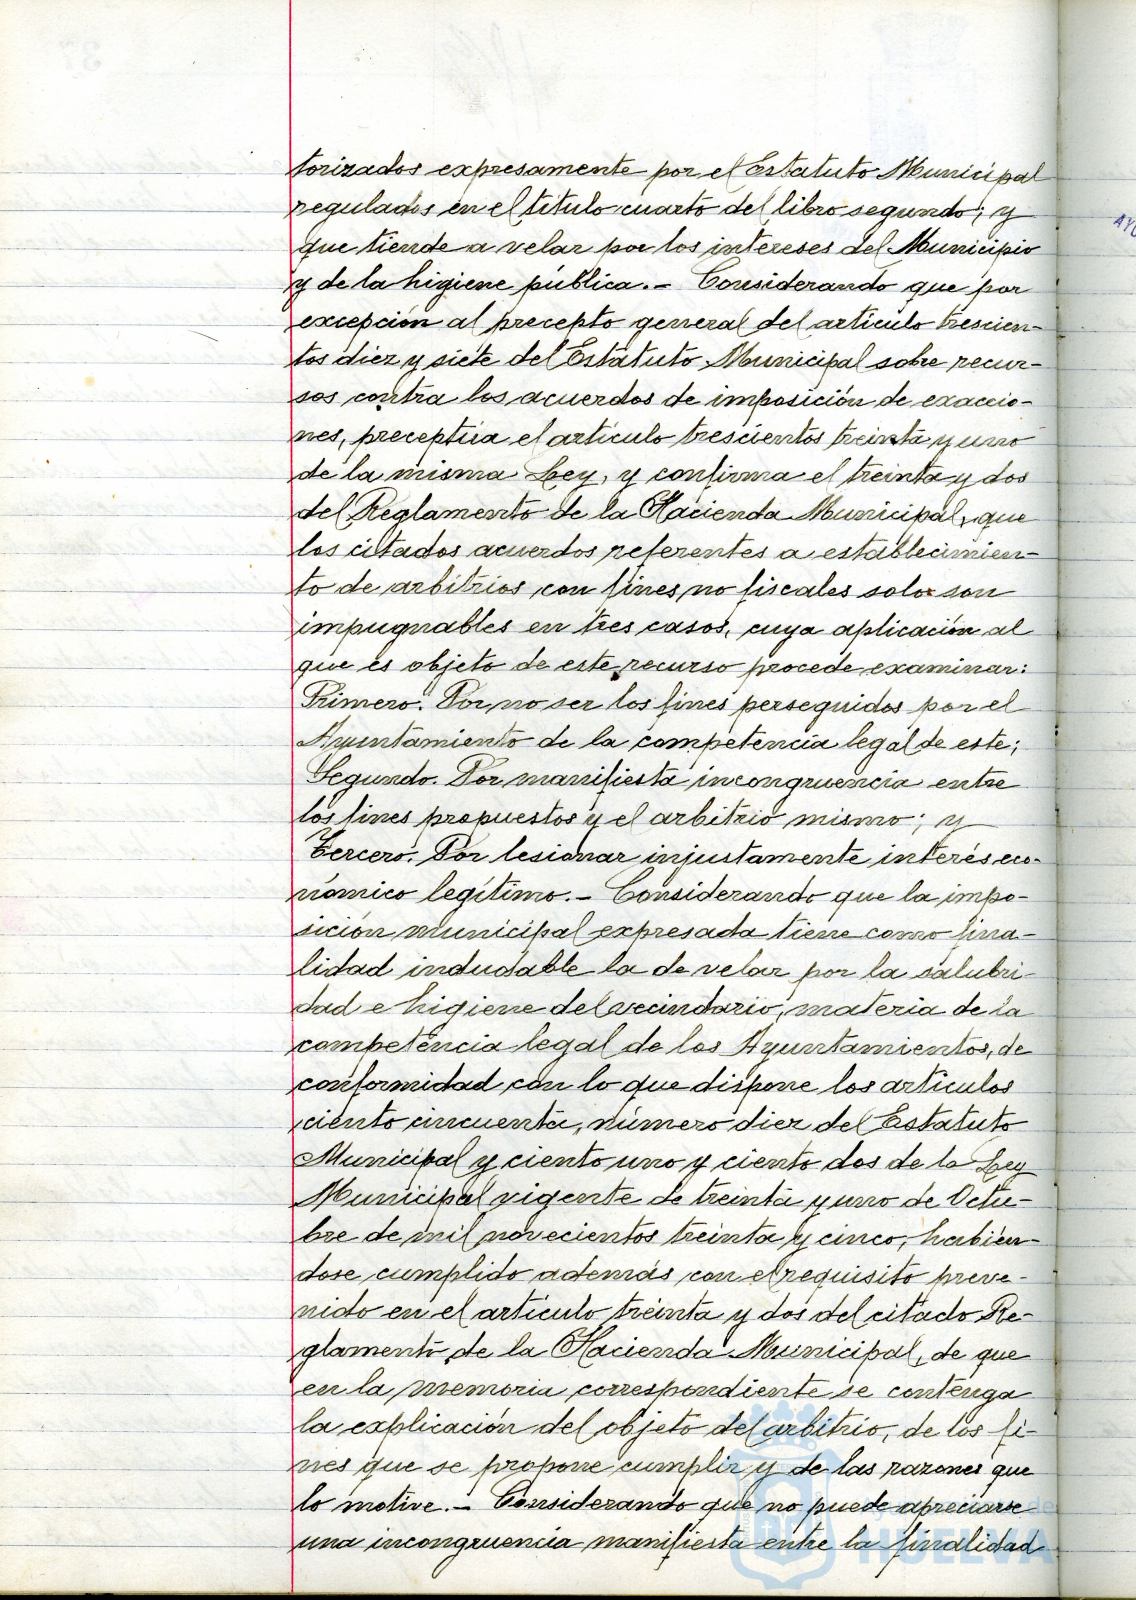 torizados expresamente por el Estatuto Municipal
regulados en el titulo cuarto del libro segundo; y
que tiende a velar por los intereses del Municipio
y de la higiene pública.- Considerando que por
excepción al precepto general del artículo trescien-
tos diez y siete del Estatuto Municipal sobre recur-
sos contra los acuerdos de imposición de exaccio-
nes, preceptúa el artículo trescientos treinta y uno
de la misma Ley, y confirma el treinta y dos
del Reglamento de la Hacienda Municipal, que
los citados acuerdos referentes a establecimien-
to de arbitrios con fines no fiscales solo son
impugnables en tres casos, cuya aplicación al
que es objeto de este recurso procede examinar:
Primero. Por no ser los fines perseguidos por el
Ayuntamiento de la competencia legal de este;
Segundo. Por manifiesta incongruencia entre
los fines propuestos y el arbitrio mismo; y
Tercero. Por lesionar injustamente interés eco-
nómico legítimo.- Considerando que la impo-
sición municipal expresada tiene como fina-
lidad indudable la de velar por la salubri-
dad e higiene del vecindario, materia de la
competencia legal de los Ayuntamientos, de
conformidad con lo que dispone los artículos
ciento cincuenta, número diez del Estatuto
Municipal y ciento uno y ciento dos de la Ley
Municipal vigente de treinta y uno de Octu-
bre de mil novecientos treinta y cinco, habién-
dose cumplido además con el requisito preve-
nido en el artículo treinta y dos del citado Re-
glamento de la Hacienda Municipal, de que
en la memoria correspondiente se contenga
la explicación del objeto del arbitrio, de los fi-
nes que se propone cumplir y de las razones que
lo motive.- Considerando que no puede apreciarse
una incongruencia manifiesta entre la finalidad
HUELVA